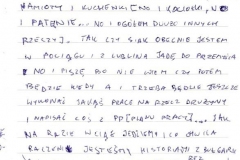 NAMIOTY I KUCHENKI (NO I KOCIOŁKI, NO
I PATELNIE... NO I OGÓŁEM DUŻO INNYCH
RZECZY). TAK CZY SIAK OBECNIE JESTEM
W POCIĄGU I Z LUBLINA JADĘ DO PRZEMYŚLA
I NO I PISZĘ BO NIE WIEM CZY POTEM
BĘDZIE KIEDY A I TRZEBA BĘDZIE JESZCZE
WYKONAĆ JAKĄŚ PRACĘ NA RZECZ DRUŻYNY
I NAPISAĆ COŚ Z TAK
NA RAZIE WCIĄŻ JEDZIEMY I CHWILA
JESTEŚMY HISTORIAMI Z BUŁGARII
BEZ